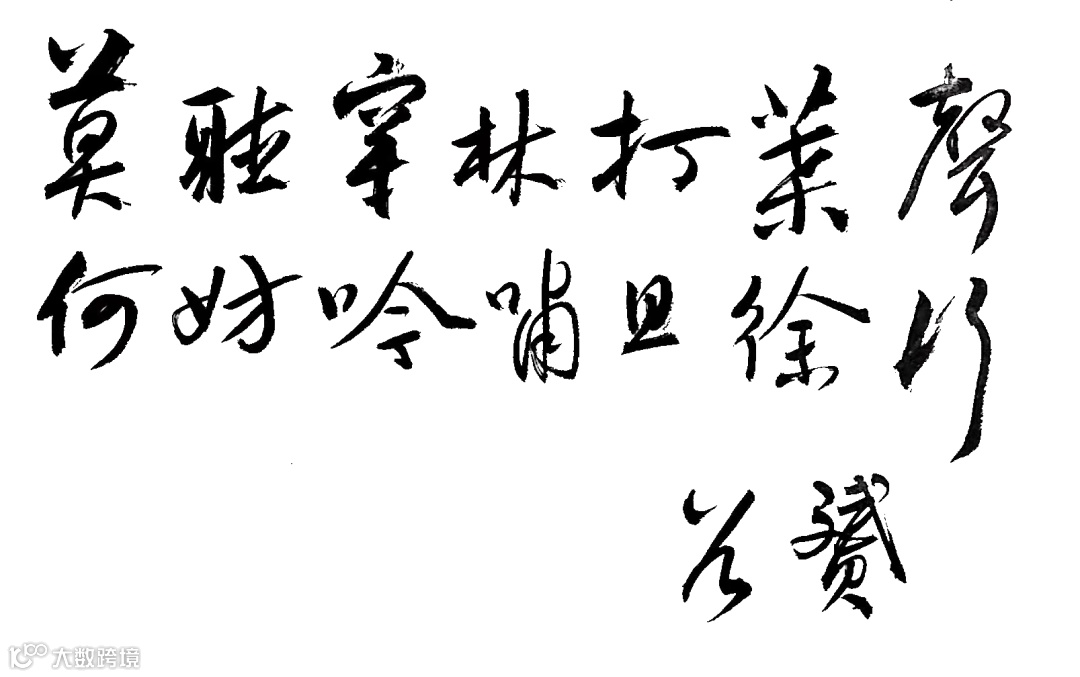 莫聽穿林打葉聲
何妨吟嘯且徐行
贇
大数跨境